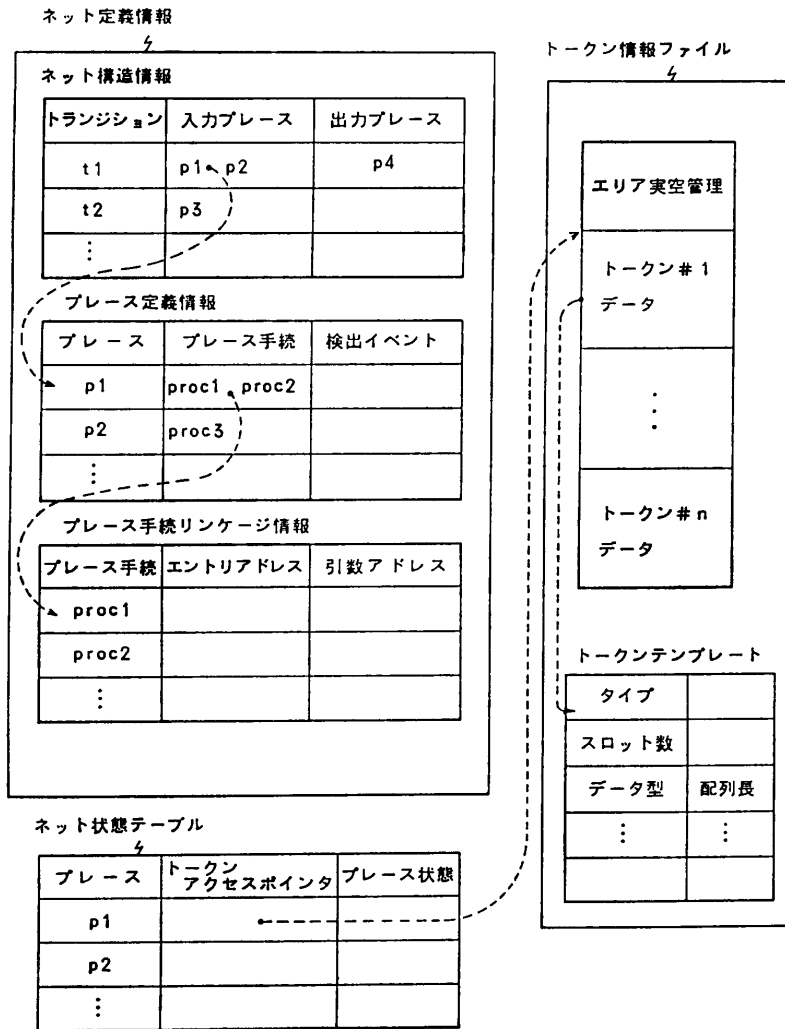 ネット定義情報
ネット構造情報
トランジション 入力プレース 出力プレース
t1 p1 p2 p4
t2 p3
⋮
プレース定義情報
プレース プレース手続 検出イベント
p1 proc1 proc2
p2 proc3
⋮
プレース手続リンケージ情報
プレース手続 エントリアドレス 引数アドレス
proc1
proc2
⋮
ネット状態テーブル
プレース トークン アクセスポインタ プレース状態
p1
p2
⋮
トークン情報ファイル
エリア実空管理
トークン#1
データ
⋮
トークン#n
データ
トークンテンプレート
タイプ
スロット数
データ型 配列長
⋮ ⋮